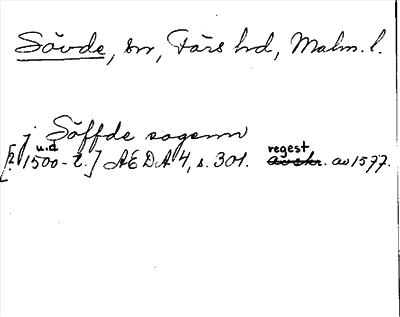 Sövde, sn, Färs hd, Malm. l.
j Söffde sogenn
[? u.d 1500-t.] ÆDA 4, s. 301. regest av 1577.